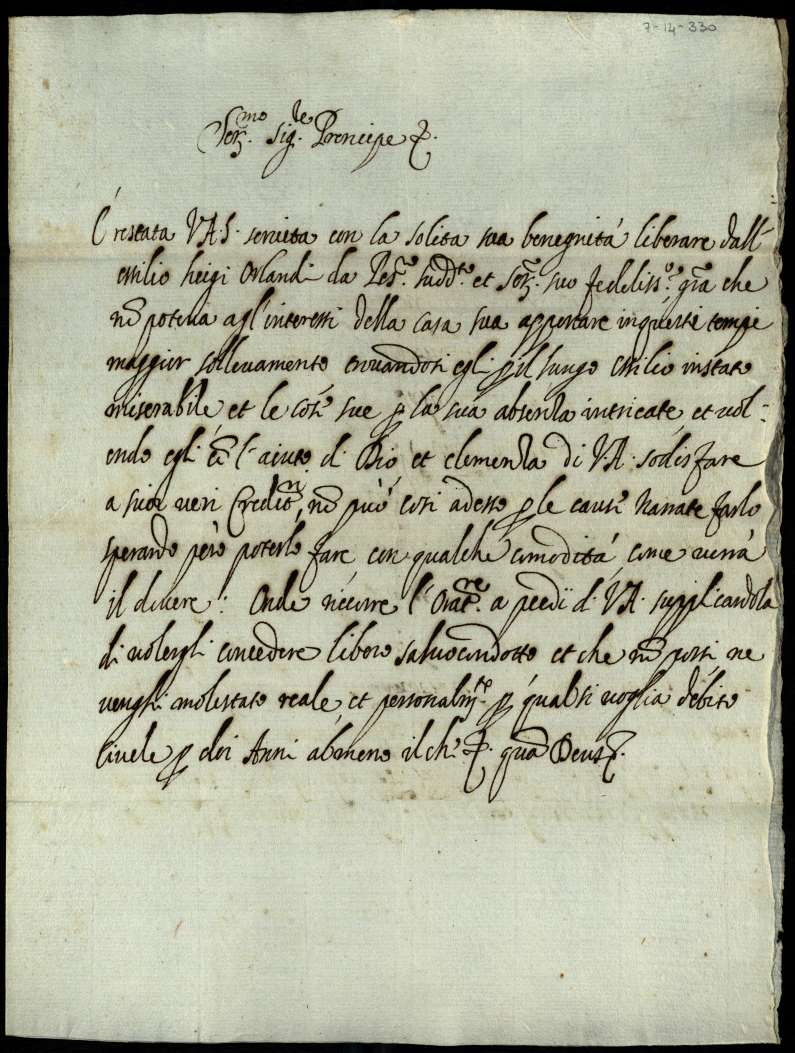 7-14-330
Ser.mo Sig.re Prencipe &.
È restata V.A.S. servita con la solita sua benegnità liberare dall'
essilio Orlandi da Pes.o sudd.to et Ser. suo fedeliss.o gr̃a che
nõ poteva agl'interessi della casa sua apportare in questi tempi
maggior sollevamento trovandosi egli p il lungo essilio in stato
miserabile et le cose sue p la sua absenza intricate et vol-
endo egli cõ l'aiuto di Dio et clemenza di V.A. sodisfare
a suoi veri Credit.ri, nõ può cosi adesso p le cause narrate farlo
sperando però poterlo fare con qualche comodità come verrà
il dovere: Onde ricorre l'Orat.re a piedi di V.A. supplicandola
di volergli concedere libero salvocondotto et che nõ possi ne
venghi molestato reale et personalm.te p qual si voglia debito
civele p doi Anni almeno il che &. quã Deus &.